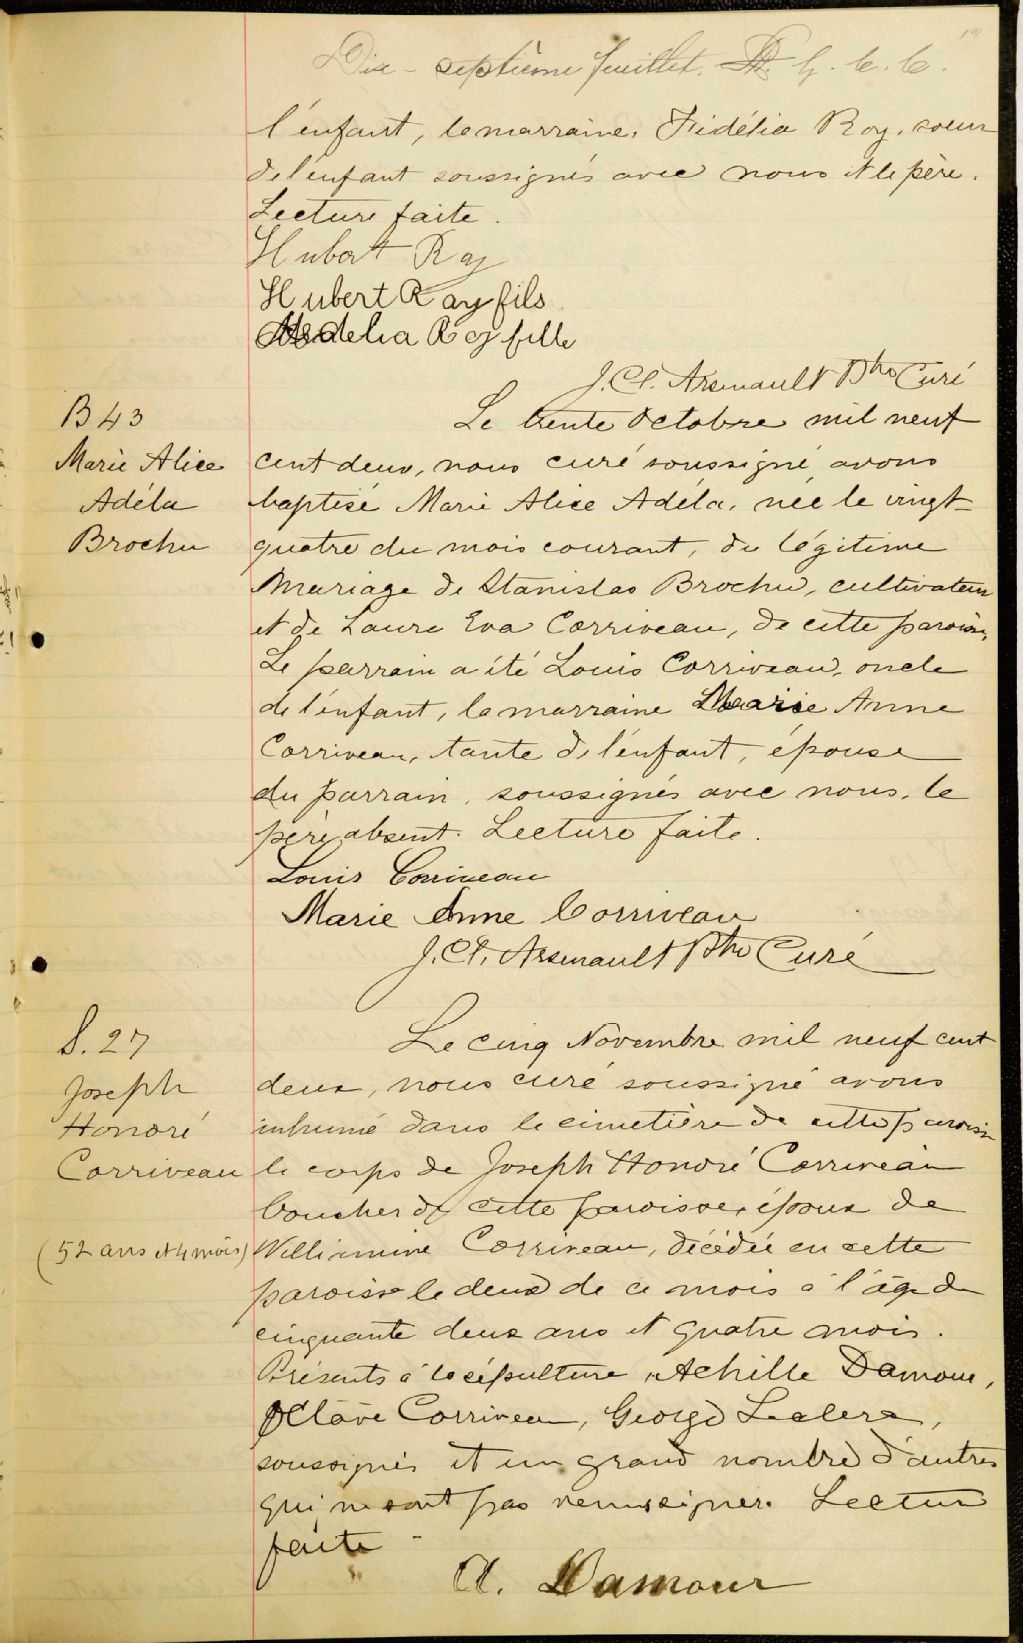 Dix-septième feuillet. G. C. C.
l'enfant, la marraine, Fidélia Roy, soeur
de l'enfant soussignés avec nous et le père.
Lecture faite.
Hubert Roy
Hubert Roy fils
Roy fille
J. Cl. Arsenault Ptre Curé
B 43
Marie Alice
Adéla
Brochu
Le trente Octobre mil neuf
cent deux, nous curé soussigné avons
baptisé Marie Alice Adéla, née le vingt-
quatre du mois courant, du légitime
mariage de Stanislas Brochu, cultivateur
et de Laure Eva Corriveau, de cette paroisse.
Le parrain a été Louis Corriveau, oncle
de l'enfant, la marraine Marie Anne
Corriveau, tante de l'enfant, épouse
du parrain, soussignés avec nous, le
père absent. Lecture faite.
Louis Corriveau
Marie Anne Corriveau
J. Cl. Arsenault Ptre Curé
S. 27
Joseph
Honoré
Corriveau
(52 ans et 4 mois)
Le cinq Novembre mil neuf cent
deux, nous curé soussigné avons
inhumé dans le cimetière de cette paroisse
le corps de Joseph Honoré Corriveau
boucher de cette paroisse, époux de
Williamine Corriveau, décédée en cette
paroisse le deux de ce mois à l'âge de
cinquante deux ans et quatre mois.
Présents à la sépulture, Achille Damour,
Octave Corriveau, George Leclerc,
soussignés et un grand nombre d'autres
qui ne sont pas venus signer. Lecture
faite
A. Damour